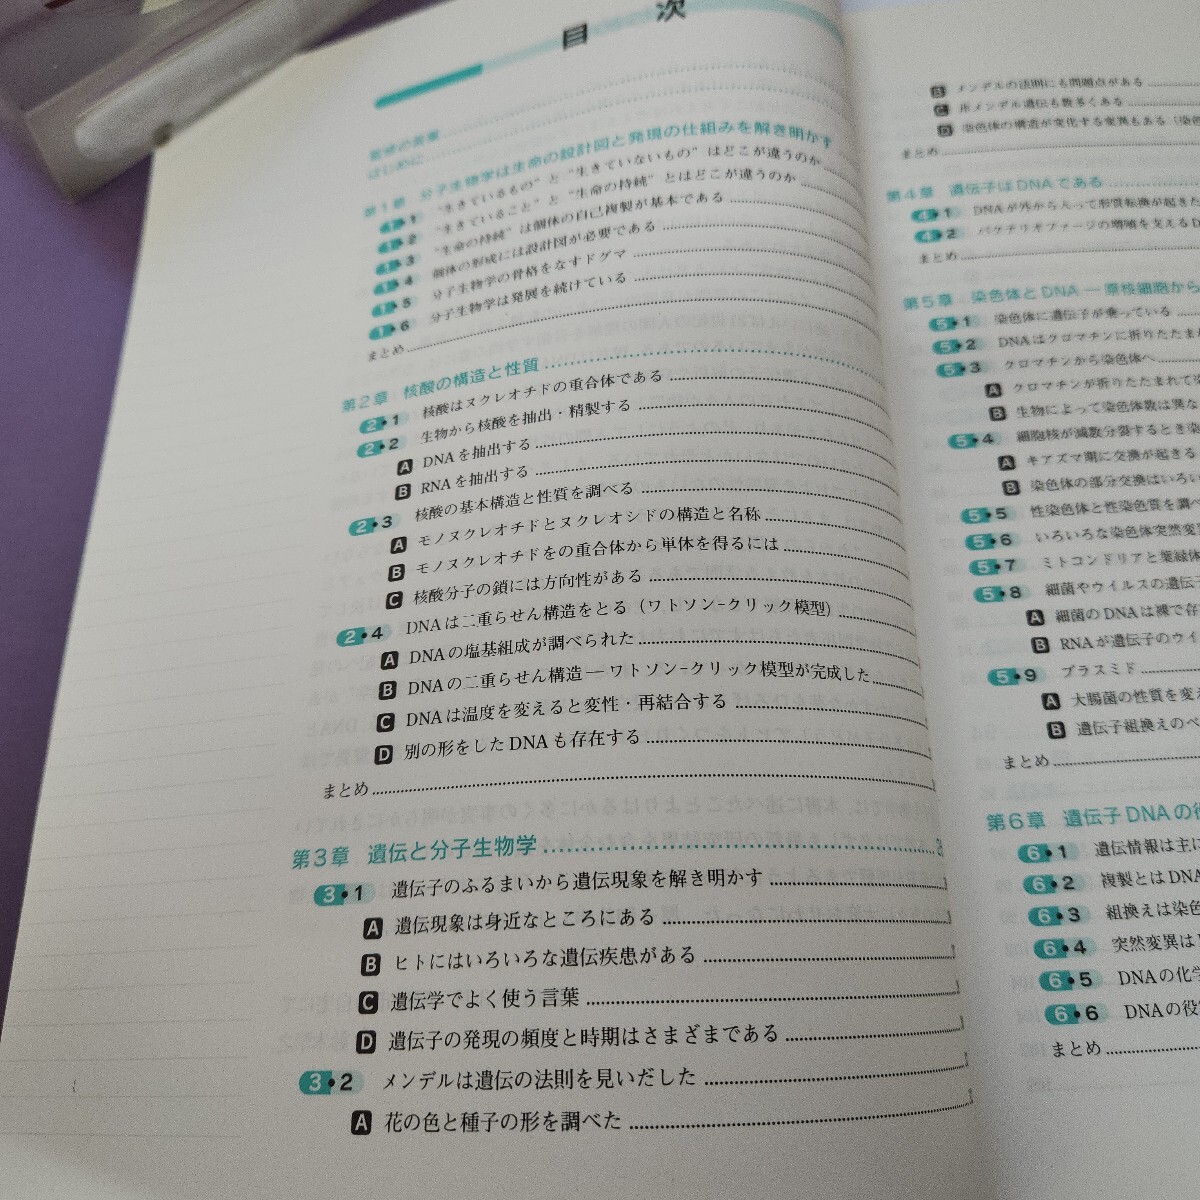 目 次
はじめに
第1章 分子生物学は生命の設計図と発現の仕組みを解き明かす
1・1 "生きているもの"と"生きていないもの"はどこが違うのか
1・2 "生きていること"と"生命の持続"とはどこが違うのか
1・3 "生命の持続"は個体の自己複製が基本である
1・4 個体の形成には設計図が必要である
1・5 分子生物学の骨格をなすドグマ
1・6 分子生物学は発展を続けている
まとめ
第2章 核酸の構造と性質
2・1 核酸はヌクレオチドの重合体である
2・2 生物から核酸を抽出・精製する
A DNAを抽出する
B RNAを抽出する
2・3 核酸の基本構造と性質を調べる
A モノヌクレオチドとヌクレオシドの構造と名称
B モノヌクレオチドをの重合体から単体を得るには
C 核酸分子の鎖には方向性がある
2・4 DNAは二重らせん構造をとる（ワトソン-クリック模型）
A DNAの塩基組成が調べられた
B DNAの二重らせん構造―ワトソン-クリック模型が完成した
C DNAは温度を変えると変性・再結合する
D 別の形をしたDNAも存在する
まとめ
第3章 遺伝と分子生物学
3・1 遺伝子のふるまいから遺伝現象を解き明かす
A 遺伝現象は身近なところにある
B ヒトにはいろいろな遺伝疾患がある
C 遺伝学でよく使う言葉
D 遺伝子の発現の頻度と時期はさまざまである
3・2 メンデルは遺伝の法則を見いだした
A 花の色と種子の形を調べた
B メンデルの法則にも問題点がある
C 非メンデル遺伝も数多くある
D 染色体の構造が変化する変異もある（染色
まとめ
第4章 遺伝子はDNAである
4・1 DNAが外から入って形質転換が起きた
4・2 バクテリオファージの増殖を支えるD
まとめ
第5章 染色体とDNA―原核細胞から
5・1 染色体に遺伝子が乗っている
5・2 DNAはクロマチンに折りたたま
5・3 クロマチンから染色体へ
A クロマチンが折りたたまれて染
B 生物によって染色体数は異な
5・4 細胞核が減数分裂するとき染
A キアズマ期に交換が起きる
B 染色体の部分交換はいろい
5・5 性染色体と性染色質を調べ
5・6 いろいろな染色体突然変
5・7 ミトコンドリアと葉緑体
5・8 細菌やウイルスの遺伝子
A 細菌のDNAは裸で存
B RNAが遺伝子のウイ
5・9 プラスミド
A 大腸菌の性質を変え
B 遺伝子組換えのベ
まとめ
第6章 遺伝子DNAの役
6・1 遺伝情報は主に
6・2 複製とはDNA
6・3 組換えは染色
6・4 突然変異は
6・5 DNAの化学
6・6 DNAの役
まとめ